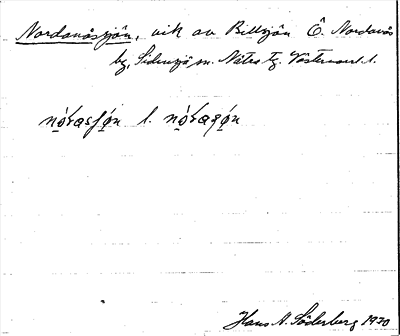 Nordanåsjön, vik av Billsjön Ö. Nordanås
by, Sidensjö sn. Nätra tg. Västernorrl. l.
Hans A. Söderberg 1930